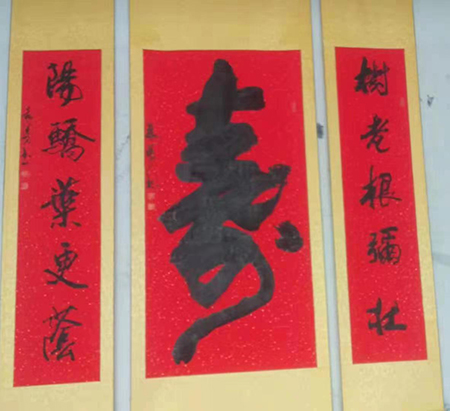 樹老根彌壯
壽
陽驕葉更蔭